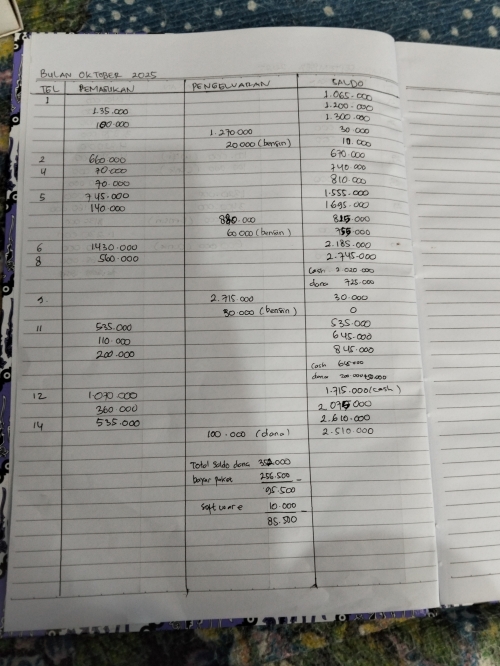 BULAN OKTOBER 2025
TGL PEMASUKAN PENGELUARAN SALDO
1 1.065.000
135.000 1.200.000
100.000 1.300.000
1.270.000 30.000
20.000 (bensin) 10.000
2 660.000 670.000
4 70.000 740.000
70.000 810.000
5 745.000 1.555.000
140.000 1.695.000
880.000 815.000
60.000 (bensin) 755.000
6 1.430.000 2.185.000
8 560.000 2.745.000
cash 2.020.000
dana 725.000
9. 2.715.000 30.000
30.000 (bensin) 0
11 535.000 535.000
110.000 645.000
200.000 845.000
cash 645.000
dana
12 1.070.000 1.715.000 (cash)
360.000 2.075.000
14 535.000 2.610.000
100.000 (dana) 2.510.000
Total Saldo dana 352.000
bayar paket 256.500 -
95.500
Software 10.000 -
85.500